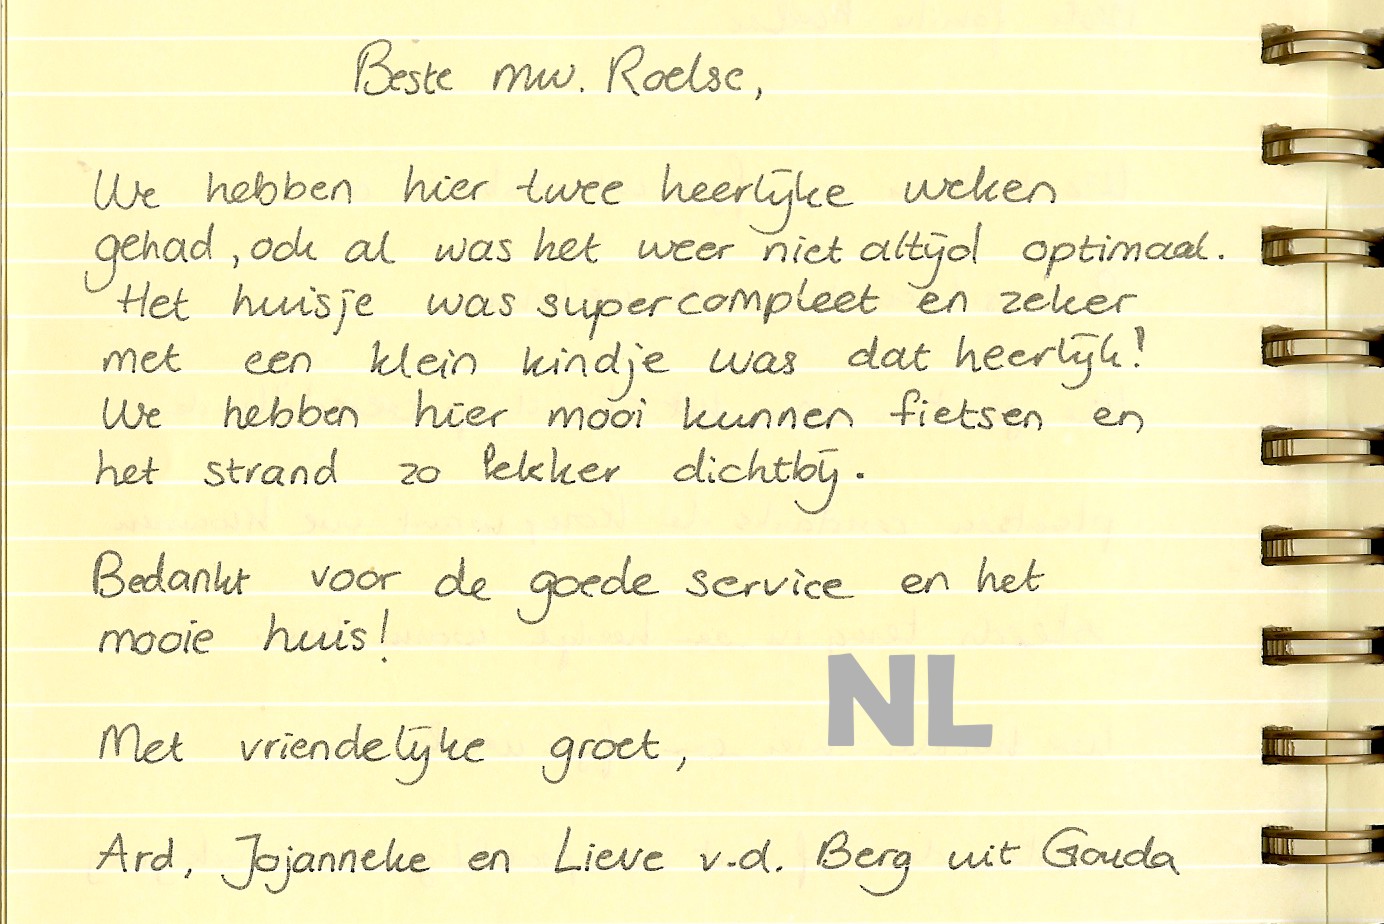 Beste mw. Roelse,
We hebben hier twee heerlijke weken
gehad, ook al was het weer niet altijd optimaal.
Het huisje was supercompleet en zeker
met een klein kindje was dat heerlijk!
We hebben hier mooi kunnen fietsen en
het strand zo lekker dichtbij.
Bedankt voor de goede service en het
mooie huis!
NL
Met vriendelijke groet,
Ard, Jojanneke en Lieve v.d. Berg uit Gouda